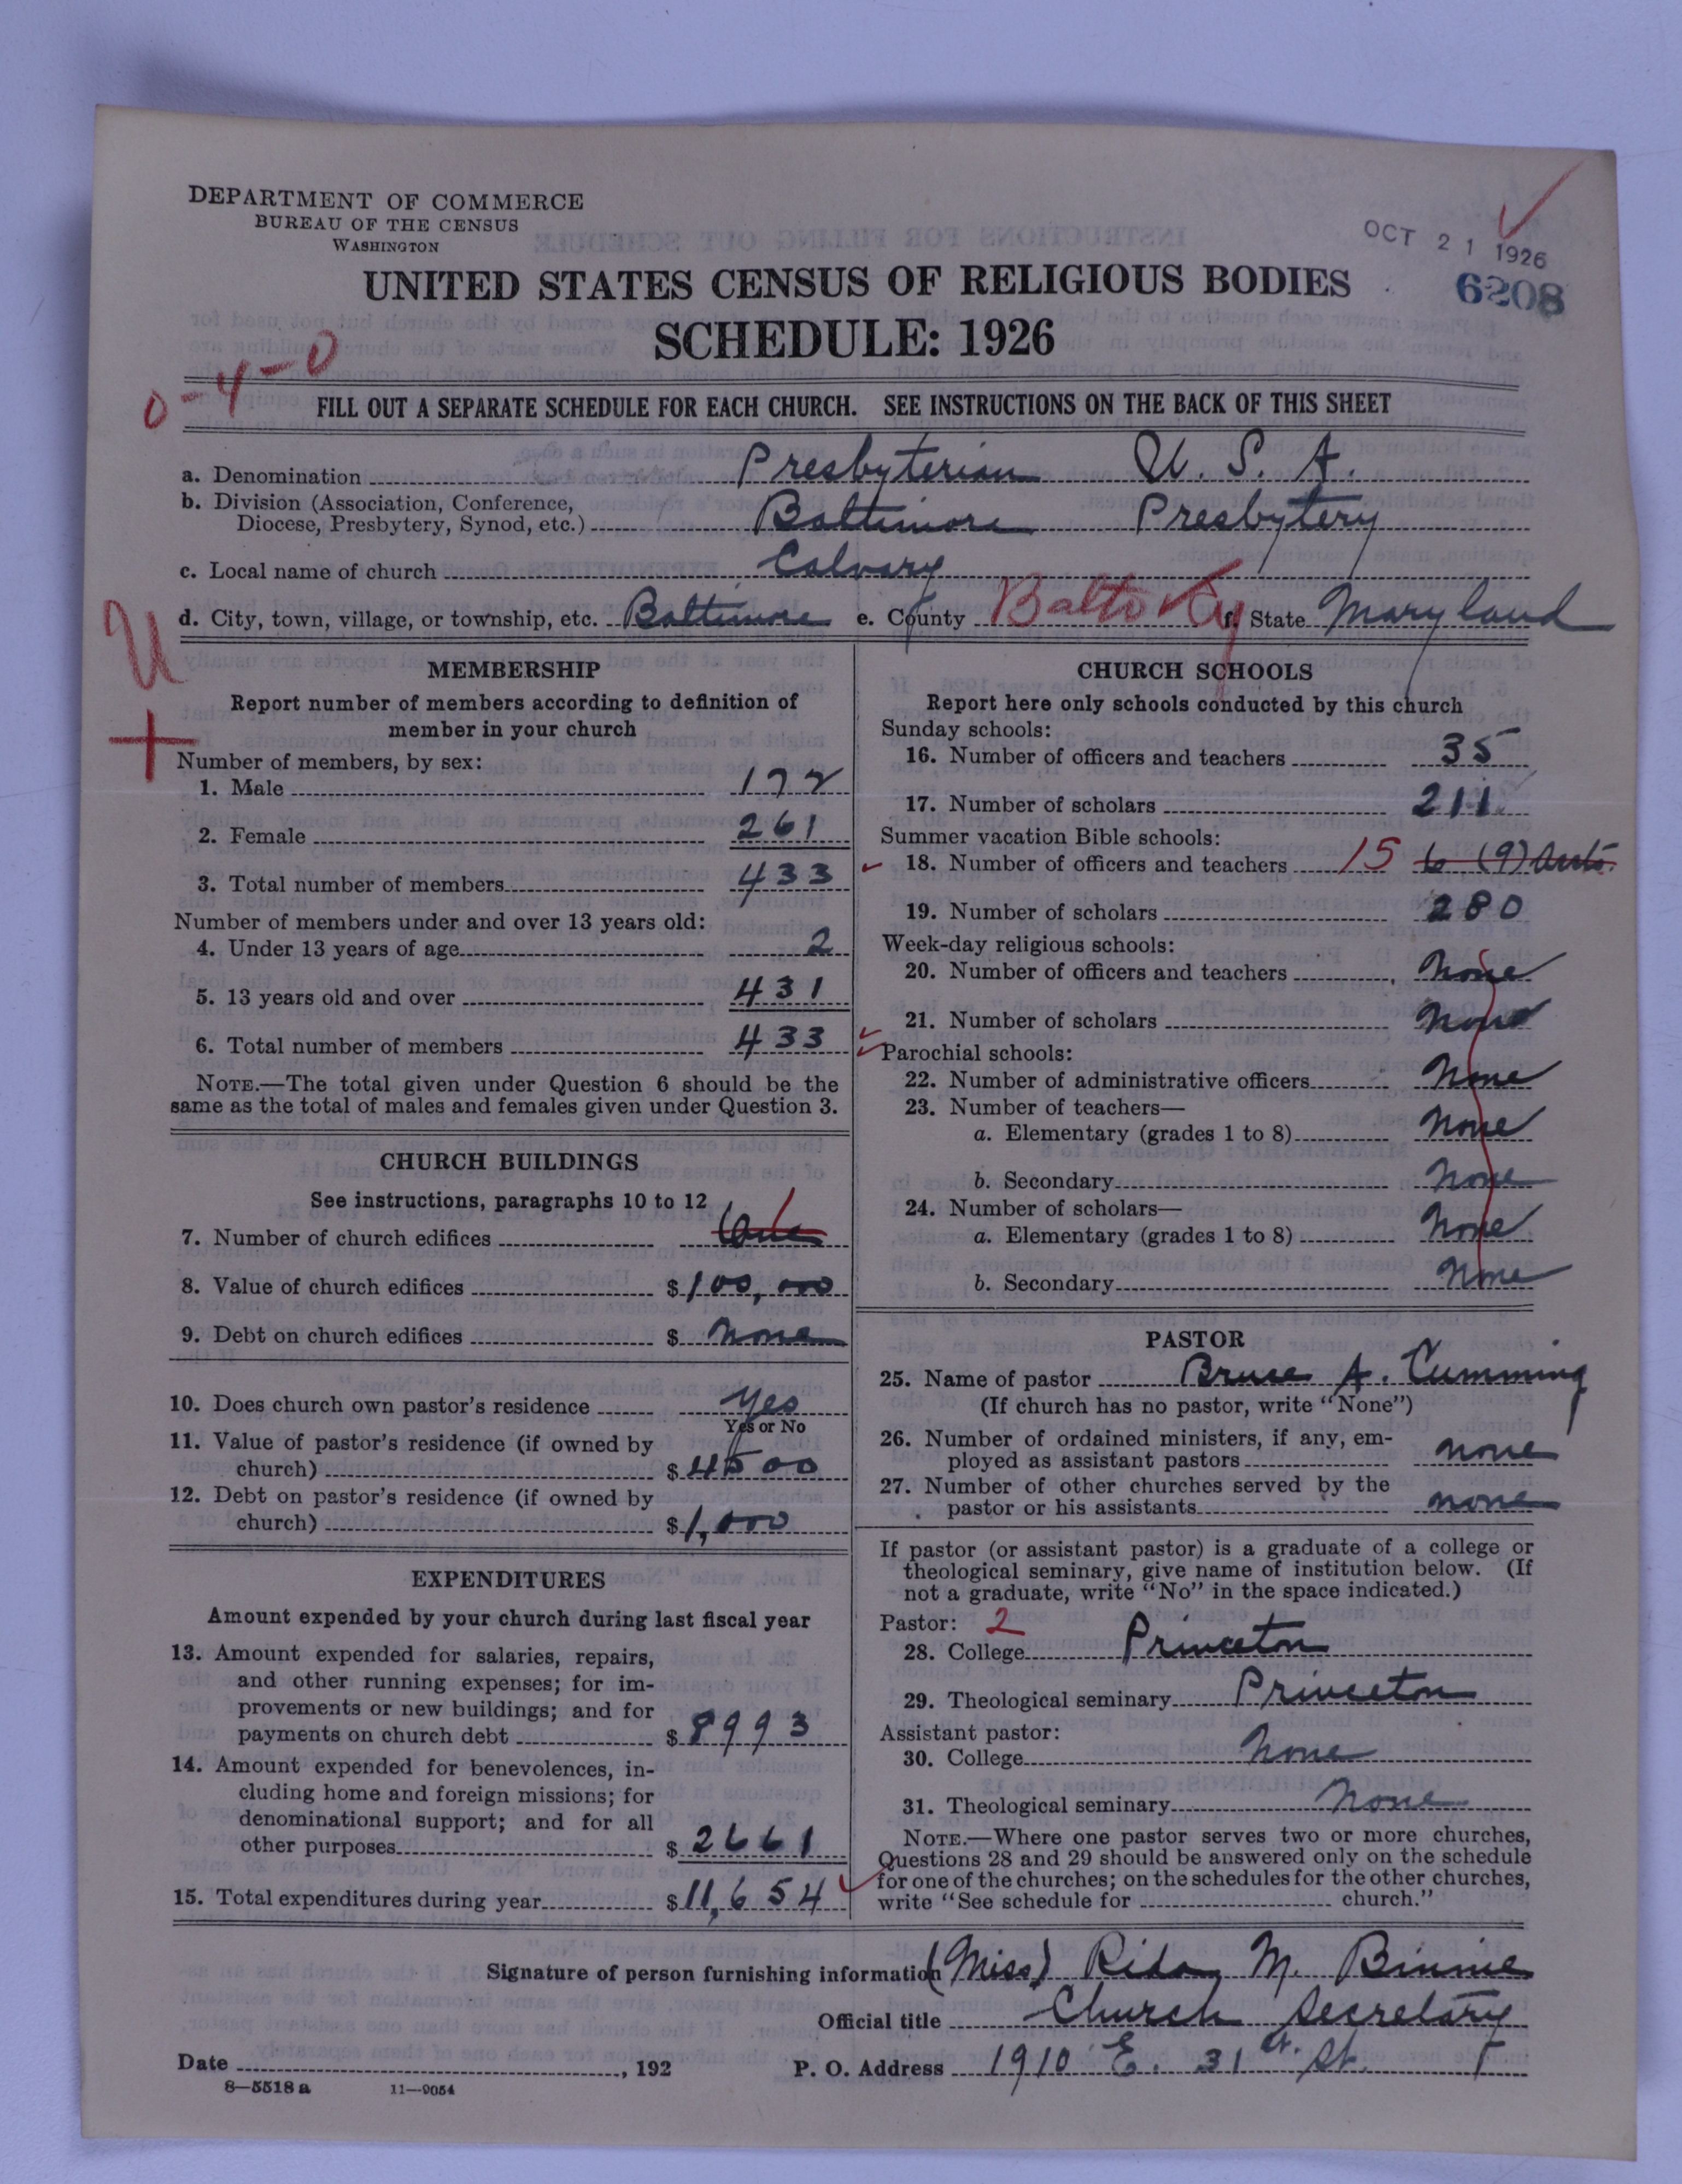 DEPARTMENT OF COMMERCE
BUREAU OF THE CENSUS
WASHINGTON
OCT 21 1926
6208
UNITED STATES CENSUS OF RELIGIOUS BODIES
SCHEDULE: 1926
0-4-0
FILL OUT A SEPARATE SCHEDULE FOR EACH CHURCH. SEE INSTRUCTIONS ON THE BACK OF THIS SHEET
a. Denomination Presbyterian U. S. A.
b. Division (Association, Conference,
Diocese, Presbytery, Synod, etc.) Baltimore Presbytery
c. Local name of church Calvary
d. City, town, village, or township, etc. Baltimore e. County Balto City f. State Maryland
U
+
MEMBERSHIP
Report number of members according to definition of
member in your church
Number of members, by sex:
1. Male 172
2. Female 261
3. Total number of members 433
Number of members under and over 13 years old:
4. Under 13 years of age 2
5. 13 years old and over 431
6. Total number of members 433
NOTE.—The total given under Question 6 should be the
same as the total of males and females given under Question 3.
CHURCH BUILDINGS
See instructions, paragraphs 10 to 12
7. Number of church edifices One 1
8. Value of church edifices $100,000
9. Debt on church edifices $ None
10. Does church own pastor's residence Yes
Yes or No
11. Value of pastor's residence (if owned by
church) $4500
12. Debt on pastor's residence (if owned by
church) $1,000
EXPENDITURES
Amount expended by your church during last fiscal year
13. Amount expended for salaries, repairs,
and other running expenses; for im-
provements or new buildings; and for
payments on church debt $8993
14. Amount expended for benevolences, in-
cluding home and foreign missions; for
denominational support; and for all
other purposes $2661
15. Total expenditures during year $11,654
CHURCH SCHOOLS
Report here only schools conducted by this church
Sunday schools:
16. Number of officers and teachers 35
17. Number of scholars 211
Summer vacation Bible schools:
18. Number of officers and teachers 15 6 (9)
19. Number of scholars 280
Week-day religious schools:
20. Number of officers and teachers None
21. Number of scholars None
Parochial schools:
22. Number of administrative officers None
23. Number of teachers—
a. Elementary (grades 1 to 8) None
b. Secondary None
24. Number of scholars—
a. Elementary (grades 1 to 8) None
b. Secondary None
PASTOR
25. Name of pastor Bruce A. Cumming
(If church has no pastor, write "None")
26. Number of ordained ministers, if any, em-
ployed as assistant pastors None
27. Number of other churches served by the
pastor or his assistants None
If pastor (or assistant pastor) is a graduate of a college or
theological seminary, give name of institution below. (If
not a graduate, write "No" in the space indicated.)
Pastor: 2
28. College Princeton
29. Theological seminary Princeton
Assistant pastor:
30. College None
31. Theological seminary None
NOTE.—Where one pastor serves two or more churches,
Questions 28 and 29 should be answered only on the schedule
for one of the churches; on the schedules for the other churches,
write "See schedule for church."
Signature of person furnishing information (Miss) Rida M. Binnie
Official title Church Secretary
Date , 192 P. O. Address 1910 E. 31st. St.
8—5518a 11—9054